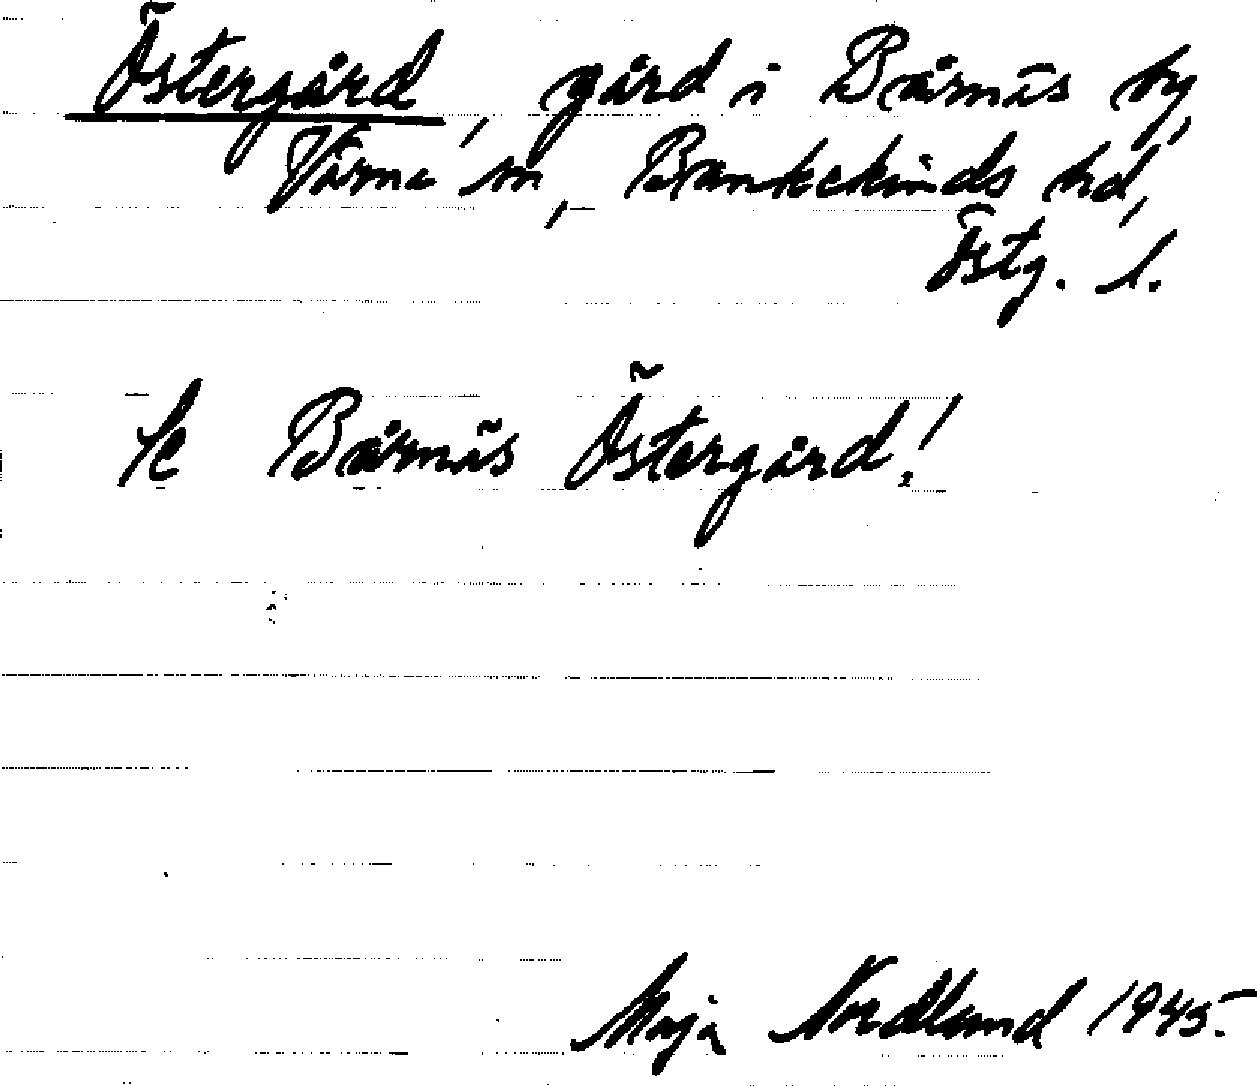 Östergård, gård i Bårnäs by,
Vårna sn, Bankekinds hd,
Östg. l.
Se Bårnäs Östergård!
Maja Nordlund 1945.